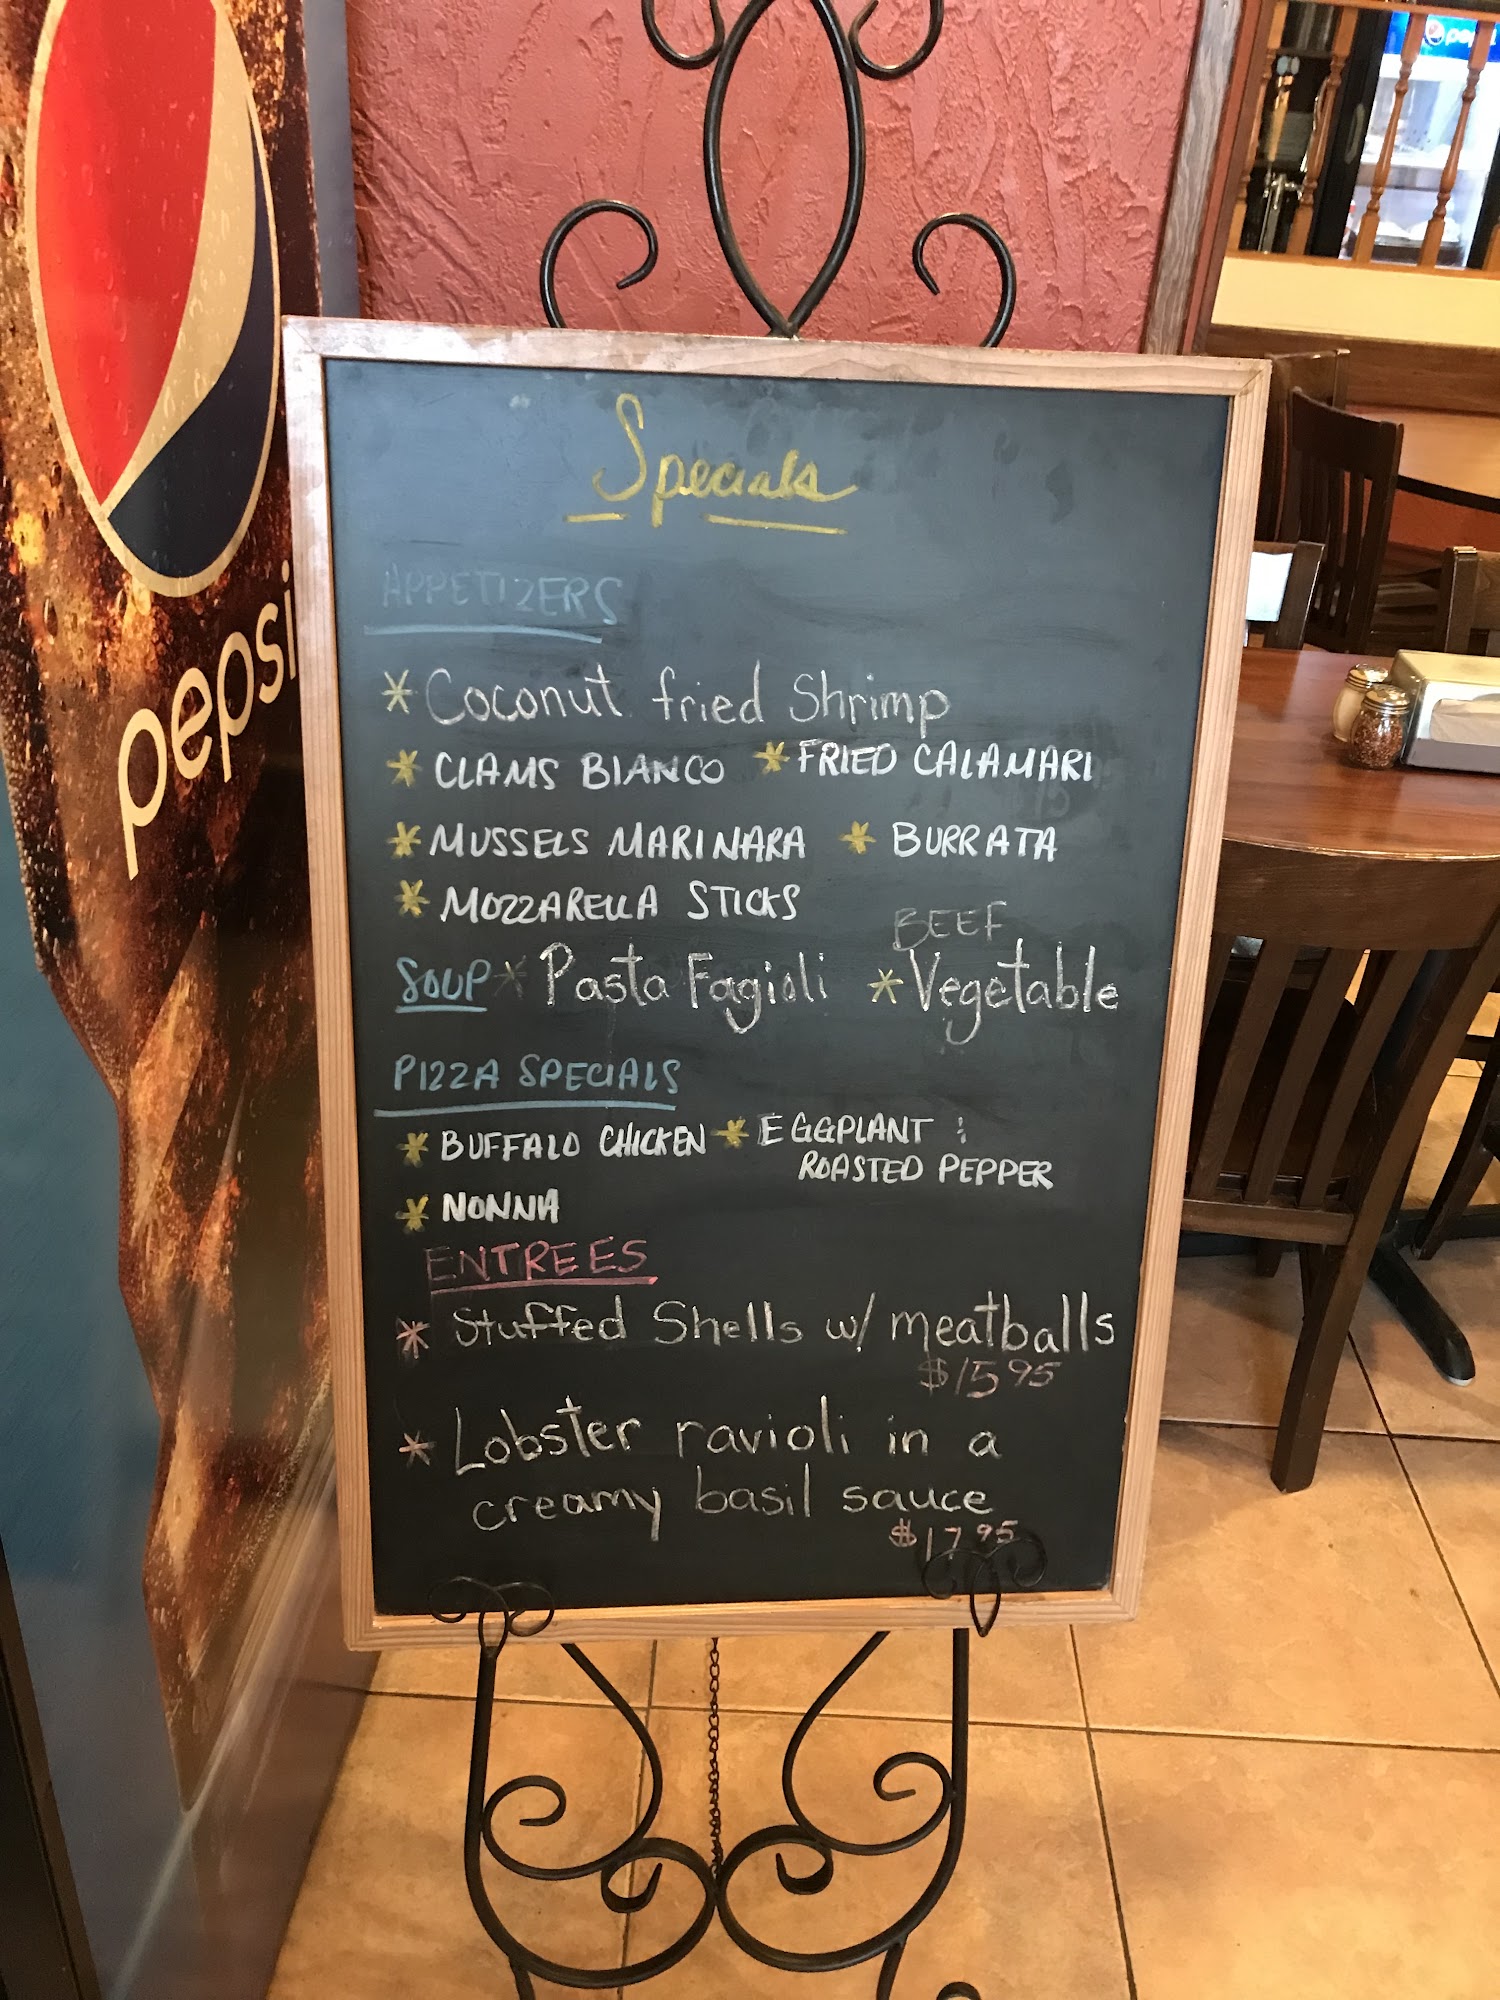 pepsi
pepsi
Specials
APPETIZERS
* Coconut fried Shrimp
* CLAMS BIANCO * FRIED CALAMARI
* MUSSELS MARINARA * BURRATA
* MOZZARELLA STICKS
BEEF
SOUP * Pasta Fagioli * Vegetable
PIZZA SPECIALS
* BUFFALO CHICKEN * EGGPLANT :
ROASTED PEPPER
* NONNA
ENTREES
* Stuffed Shells w/ meatballs
$15.95
* Lobster ravioli in a
creamy basil sauce
$17.95